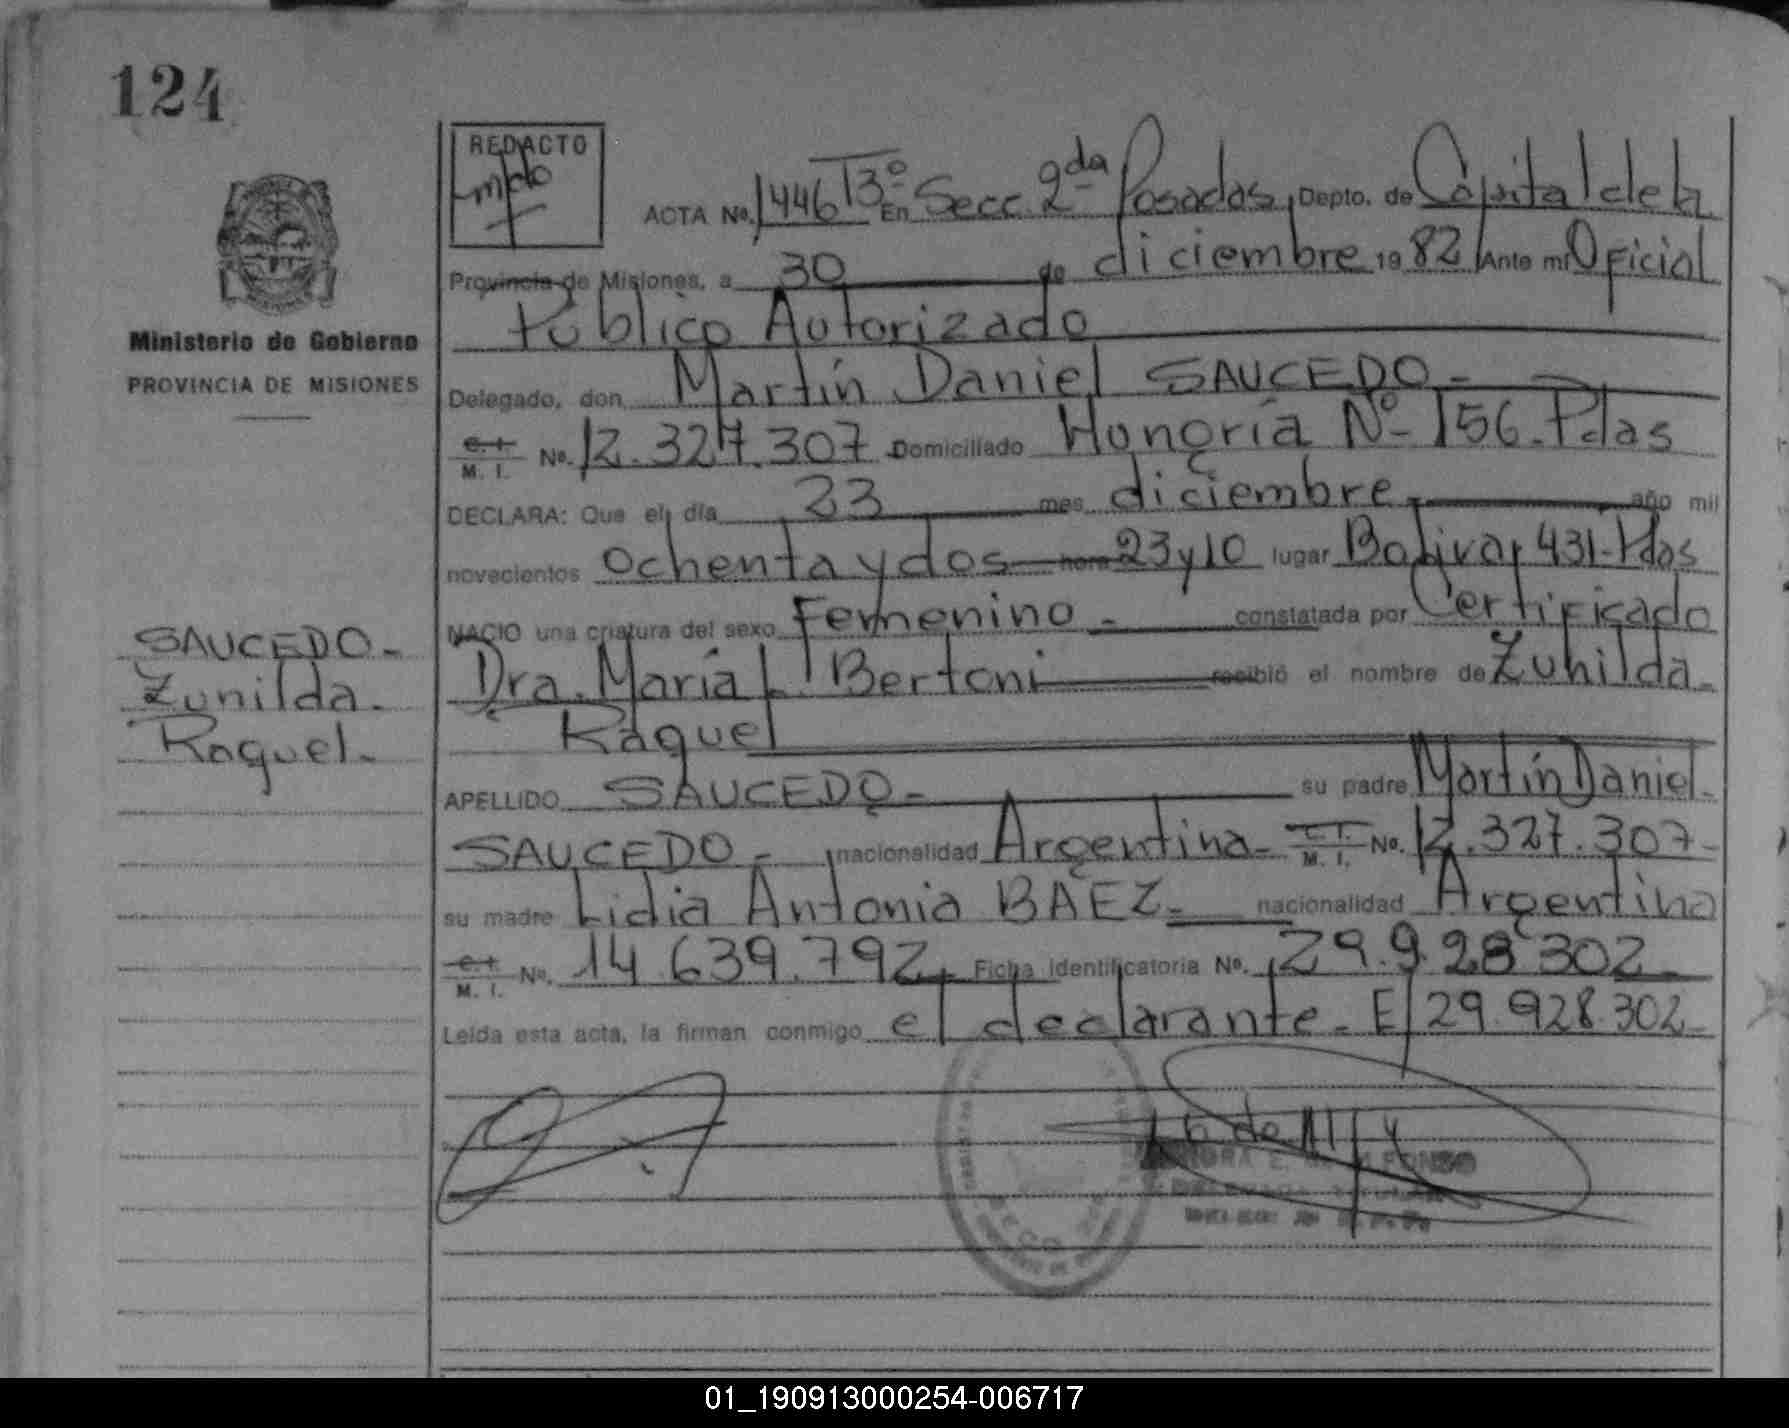 124
REDACTO
ACTA No. 1446 T3º En Secc. 2da Posadas, Depto. de Capital de la
Provincia de Misiones, a 30 de diciembre 1982 Ante mí Oficial
Público Autorizado
Ministerio de Gobierno
PROVINCIA DE MISIONES
Delegado, don Martín Daniel SAUCEDO -
C.I. M. I. No. 12.327.307 Domiciliado Hungría Nº 156 - Pdas
DECLARA: Que el día 23 mes diciembre - año mil
novecientos ochenta y dos hora 23 y 10 lugar Bolívar 431 - Pdas
NACIO una criatura del sexo Femenino - constatada por Certificado
Dra. María L. Bertoni recibió el nombre de Zunilda
Raquel
SAUCEDO -
Zunilda -
Raquel -
APELLIDO SAUCEDO - su padre Martín Daniel -
SAUCEDO - nacionalidad Argentina - C.I. M. I. No. 12.327.307 -
su madre Lidia Antonia BAEZ - nacionalidad Argentina
C.I. M. I. No. 14.639.792 - Ficha Identificatoria No. 29.928 302 -
Leída esta acta, la firman conmigo el declarante - E/ 29.928.302 -
SECC. 2da
01_190913000254-006717